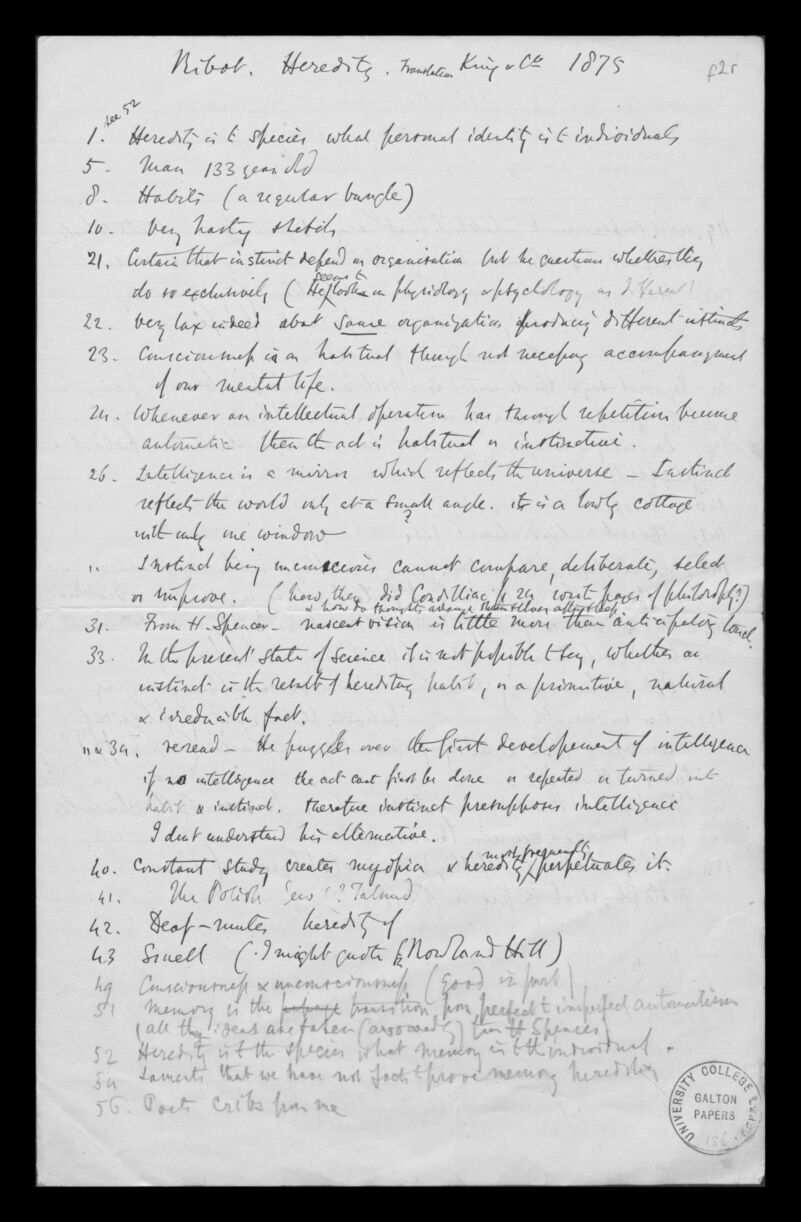 Ribot. Heredity. Translation King & Co 1875
f2r
see 52
1. Heredity is to species what personal identity is to individuals
5. Man 133 years old
8. Habits (a regular bungle)
10. very hasty sketch
21. Certain that instinct depend on organisation but he questions whether they
do so exclusively (He seems to look on physiology & psychology as different!
22. very lax indeed about same organization producing different instincts
23. Consciousness is an habitual though not necessary accompanyment
of our mental life.
24. Whenever an intellectual operation has through repetition become
automatic then the act is habitual or instinctive.
26. Intelligence is a mirror which reflects the universe – Instinct
reflects the world only at a small angle. it is a lowly cottage
with only one window
" Instinct being unconscious cannot compare, deliberate, select
or improve. (how, then did Condillac p 24 write pages of philosophy?)
& how do thoughts arrange themselves after sleep
31. From H. Spencer – nascent vision is little more than anticipatory touch.
33. In the present state of science it is not possible to say, whether an
instinct is the result of hereditary habit, or a primitive, natural
& irreducible fact.
" & 34. reread – He puzzles over the first developement of intelligence
if no intelligence the act cant first be done or repeated or turned into
habit & instinct. therefore instinct presupposes intelligence
I dont understand his alternative.
40. Constant study creates myopia & heredity most frequently perpetuates it.
41. The Polish Jews? Talmud
42. Deaf-mutes heredity of
43 Smell (I might quote Rowland Hill)
49 Consciousness & unconsciousness (good in part)
51 Memory is the passage transition from perfect to imperfect automatism
(all these ideas are taken (avowedly) from H Spencer)
52 Heredity is to the species what memory is to the individual.
54 Laments that we have not facts to prove memory hereditary
56. Poets cribs from me
UNIVERSITY COLLEGE
GALTON
PAPERS